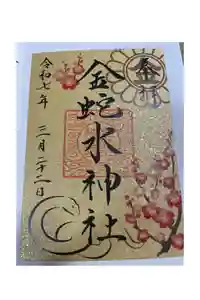 奉拝
金蛇水神社
令和七年
三月二十二日